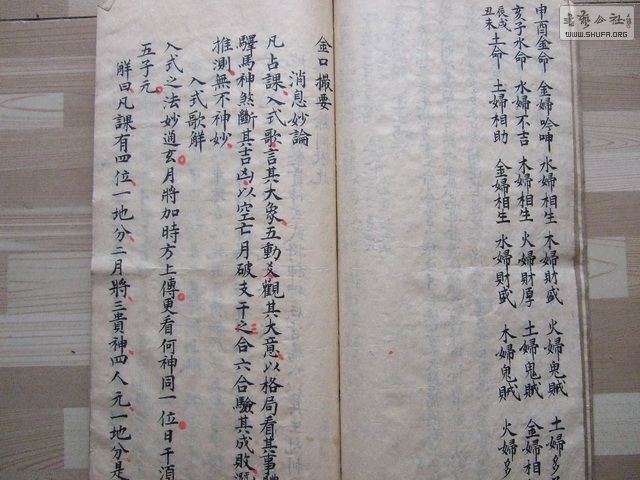 申酉金命 金婦吟呻 水婦相生 木婦財盛 火婦鬼賊 土婦多
亥子水命 水婦不吉 木婦相生 火婦財厚 土婦鬼賊 金婦相
辰戌丑未土命 土婦相助 金婦相生 水婦財盛 木婦鬼賊 火婦多
金口撮要
消息妙論
凡占課入式歌言其大象五動爻觀其大意以格局看其事體
驛馬神煞斷其吉凶以空亡月破支干之合六合驗其成敗
推測無不神妙
入式歌解
入式之法妙通玄月將加時方上傳更看何神同一位日干須
五子元
解曰凡課有四位一地分二月將三貴神四人元一地分是
書藝公社
WWW.SHUFA.ORG